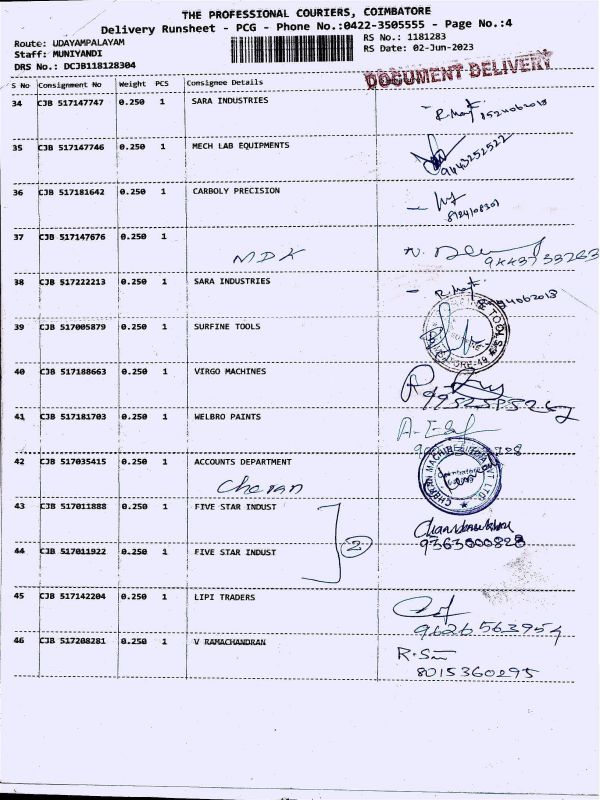 THE PROFESSIONAL COURIERS, COIMBATORE
Delivery Runsheet - PCG - Phone No.:0422-3505555 - Page No.:4
Route: UDAYAMPALAYAM
RS No.: 1181283
Staff: MUNIYANDI
RS Date: 02-Jun-2023
DRS No.: DCJB118128304
DOCUMENT DELIVERY
S No Consignment No Weight PCS Consignee Details
34 CJB 517147747 0.250 1 SARA INDUSTRIES
35 CJB 517147746 0.250 1 MECH LAB EQUIPMENTS
9443252522
36 CJB 517181642 0.250 1 CARBOLY PRECISION
37 CJB 517147676 0.250 1
MDK
9443733263
38 CJB 517222213 0.250 1 SARA INDUSTRIES
39 CJB 517005879 0.250 1 SURFINE TOOLS
40 CJB 517188663 0.250 1 VIRGO MACHINES
41 CJB 517181703 0.250 1 WELBRO PAINTS
42 CJB 517035415 0.250 1 ACCOUNTS DEPARTMENT
Charan
43 CJB 517011888 0.250 1 FIVE STAR INDUST
9363000828
44 CJB 517011922 0.250 1 FIVE STAR INDUST
2
45 CJB 517142204 0.250 1 LIPI TRADERS
9626563954
46 CJB 517208281 0.250 1 V RAMACHANDRAN
8015360295